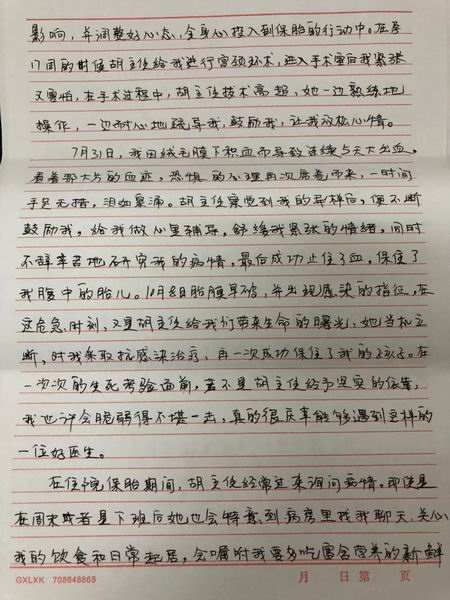 影响，并调整好心态，全身心投入到保胎的行动中。在孕
17周的时候胡主任给我进行宫颈环术，进入手术室后我紧张
又害怕，在手术过程中，胡主任技术高超，她一边熟练地
操作，一边耐心地疏导我，鼓励我，让我放松心情。
7月31日，我因绒毛膜下积血而导致连续5天大出血，
看着那大片的血迹，恐惧的心理再次席卷而来，一时间
手足无措，泪如泉涌。胡主任察觉到我的异样后，便不断
鼓励我，给我做心里辅导，舒缓我紧张的情绪，同时
不辞辛苦地研究我的病情，最后成功止住了血，保住了
我腹中的胎儿。10月8日胎膜早破，并出现感染的指征，在
这危急时刻，又是胡主任给我们带来生命的曙光，她当机立
断，对我采取抗感染治疗，再一次成功保住了我的孩子。在
一次次的生死考验面前，若不是胡主任给予坚实的依靠，
我也许会脆弱得不堪一击，真的很庆幸能够遇到这样的
一位好医生。
在住院保胎期间，胡主任经常过来询问病情。即使是
在周末或者是下班后她也会特意到病房里找我聊天，关心
我的饮食和日常起居，会嘱咐我要多吃富含营养的新鲜
GXLXK 708646865 月 日第 页